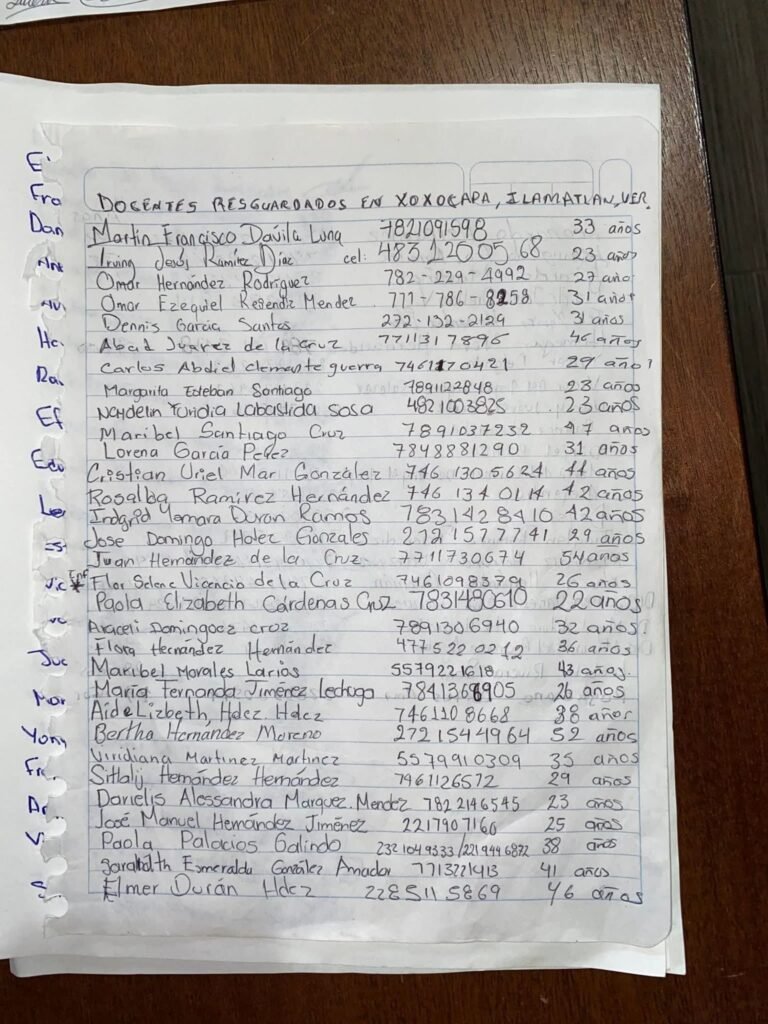 DOCENTES RESGUARDADOS EN XOXOCAPA, ILAMATLAN, VER.
Martin Francisco Dávila Luna 7821091598 33 años
Irving Jesús Ramírez Díaz cel: 483 12005 68 23 años
Omar Hernández Rodríguez 782-229-4992 27 año
Omar Ezequiel Resendiz Mendez 771-786-8258 31 años
Dennis García Santos 272-132-2129 31 años
Abad Juarez de la cruz 7711317896 46 años
Carlos Abdiel clemente guerra 7461170421 29 años
Margarita Esteban Santiago 7891122848 28 años
Nahdelin Yuridia Labastida sosa 4821003825 23 años
Maribel Santiago Cruz 7891037232 47 años
Lorena García Perez 7848881290 31 años
Cristian Uriel Mar González 746 130 5624 44 años
Rosalba Ramirez Hernández 746 134 0114 42 años
Indgrid Yomara Duran Ramos 7831428410 42 años
Jose Domingo Hdez Gonzales 272 1577741 29 años
Juan Hernández de la Cruz 7711730674 54 años
Flor Selene Vicencio de la Cruz 7461098379 26 años
Paola Elizabeth Cárdenas Cruz 7831480610 22 años
Araceli Dominguez cruz 7891306940 32 años
Flora Hernandez Hernández 477 522 0212 36 años
Maribel Morales Larios 5579221618 43 años.
María Fernanda Jiménez Lechuga 7841368905 26 años
Aide Lizbeth Hdez. Hdez 7461108668 38 años
Bertha Hernandez Moreno 2721544964 52 años
Viridiana Martinez Martinez 5579910309 35 años
Sitlalij Hernández Hernández 7461126572 29 años
Darielis Alessandra Marquez Mendez 7822146545 23 años
José Manuel Hernández Jiménez 2217907160 25 años
Paola Palacios Galindo 232 1049333 / 2219446872 38 años
Sarahaith Esmeralda González Amador 7713221413 41 años
Elmer Durán Hdez 2285115869 46 años